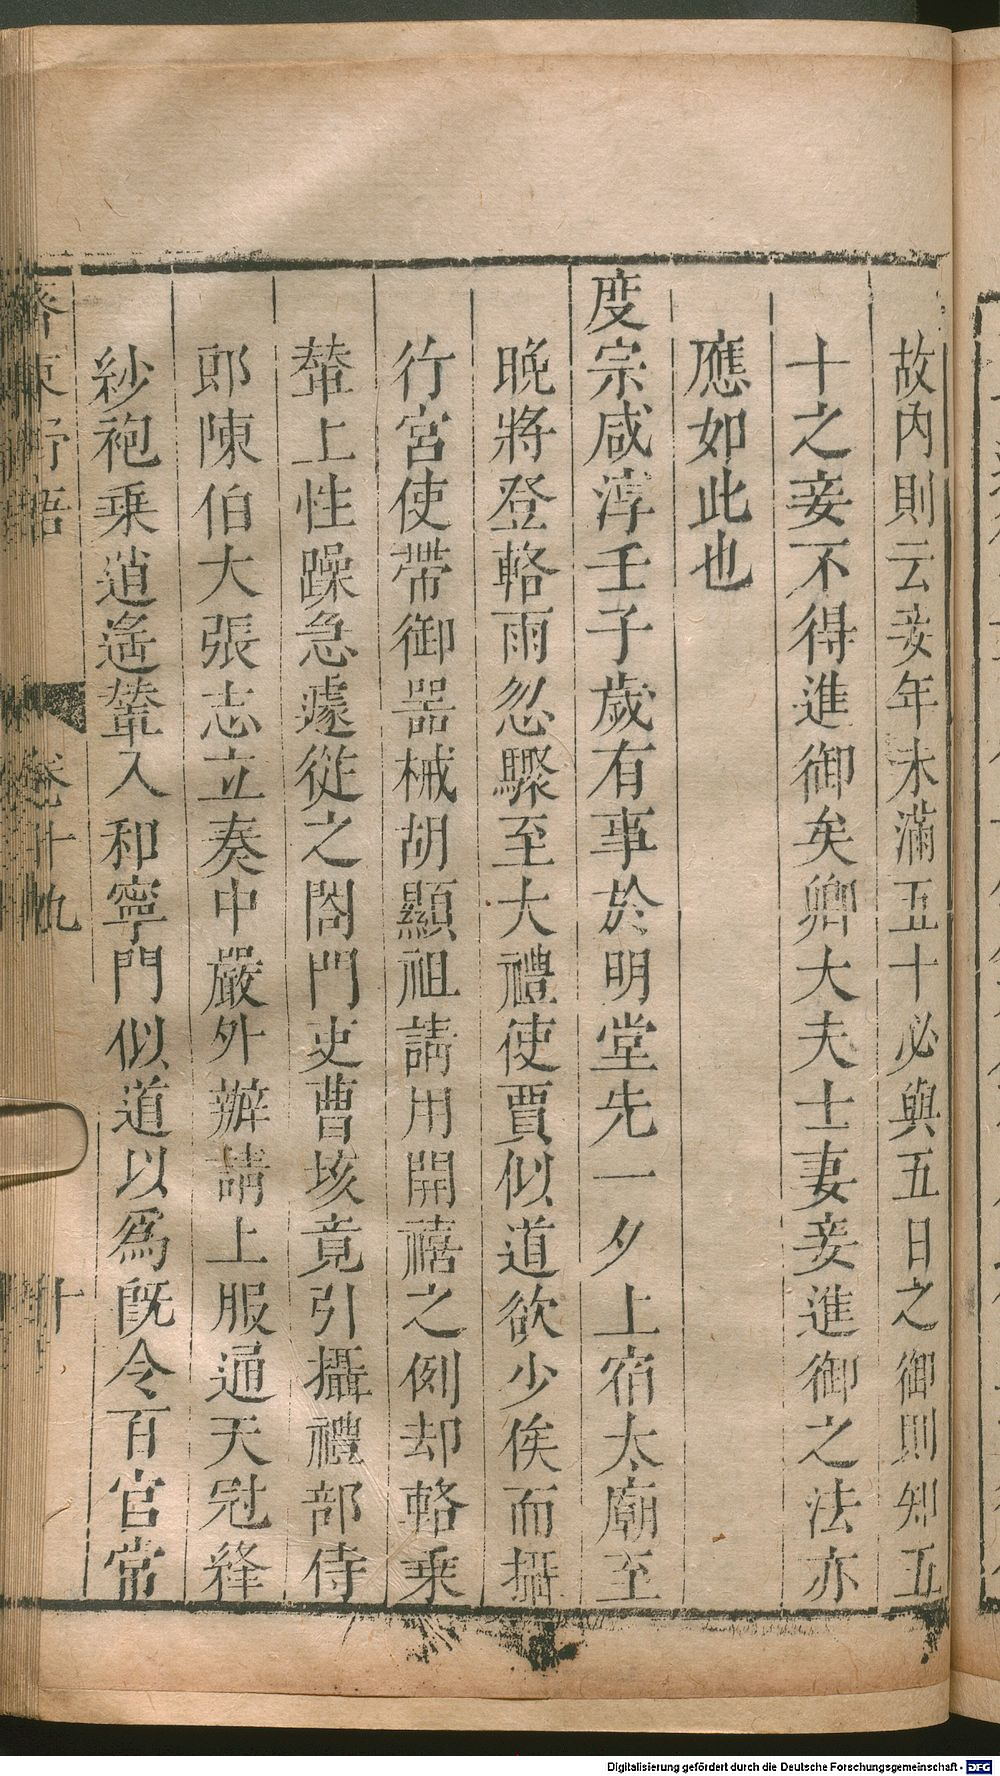 故内則云妾年未滿五十必與五日之御則知五
十之妾不得進御矣卿大夫士妻妾進御之法亦
應如此也
度宗咸淳壬子歲有事於明堂先一夕上宿太廟至
晚將登輅雨忽驟至大禮使賈似道欲少俟而攝
行宮使帶御器械胡顯祖請用開禧之例却輅乘
輦上性躁急遽從之閤門吏曹垓竟引攝禮部侍
郎陳伯大張志立奏中嚴外辦請上服通天冠絳
紗袍乗逍遙輦入和寧門似道以爲旣令百官常
齊東野語 卷十九 十
Digitalisierung gefördert durch die Deutsche Forschungsgemeinschaft - DFG